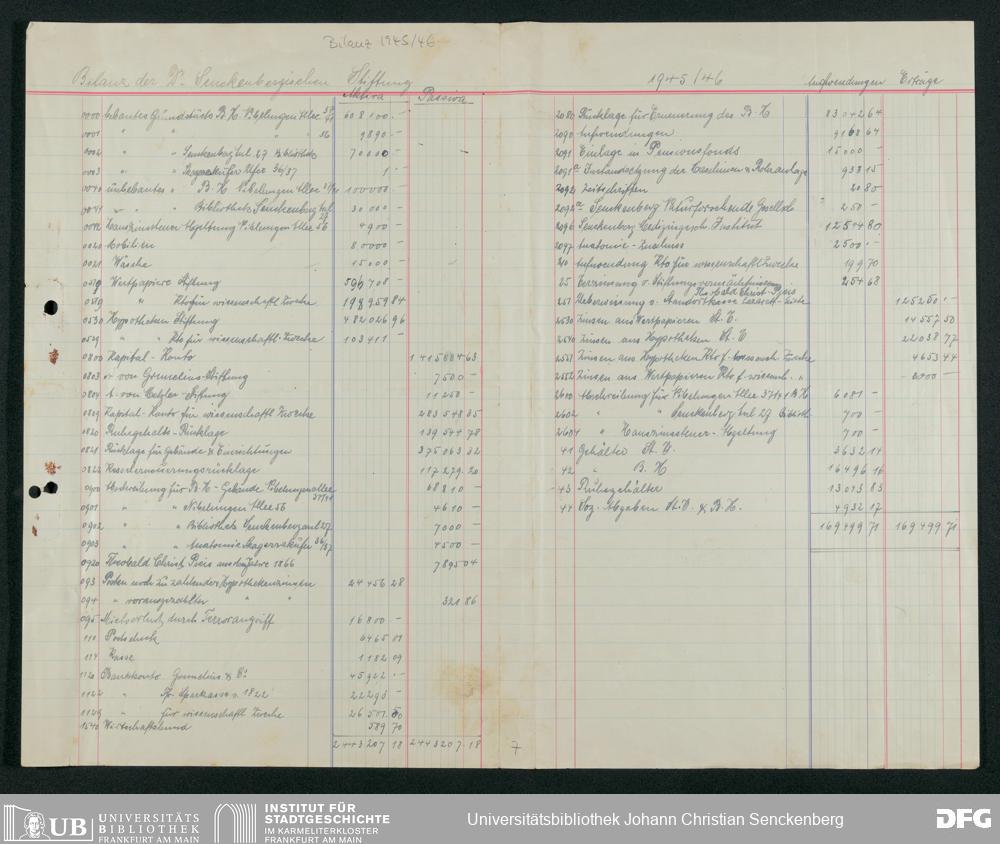 Bilanz 1945/46
Bilanz der Dr. Senckenbergischen Stiftung
Aktiva Passiva
0000 bebautes Grundstück B.H. Nibelungen Allee 608 100 . -
0001 " " " 56 9 890 . -
0002 " " Senckenberganl. 27 Bibliothek 70 000 -
0003 " " 36/37 1 . -
0040 unbebautes " B.H. Nibelungen Allee 100 000 . -
0041 " " Bibliothek Senckenberg anl. 30 000 -
Hauszinssteuer Abgeltung Nibelungen Allee 56 4 900 -
0020 Mobilien 80 000 -
0021 Wäsche 15 000 -
Wertpapiere Stiftung 596 708 -
0519 " Kto für wissenschaftl. Zwecke 198 959 84
0530 Hypotheken Stiftung 482 026 96
0529 " " Kto für wissenschaftl. Zwecke 103 411 -
0800 Kapital - Konto
0803 " von Gremelius-Stiftung 7 500 -
0804 " von Metzler-Stiftung 11 250 -
Kapital-Konto für wissenschaftl. Zwecke 283 548 35
0820 Ruhegehalts-Rücklage 139 544 78
0821 Rücklage für Gebäude & Einrichtungen 375 063 32
0822 117 279 . 20
0900 Abschreibung für B.H - Gebäude Nibelungenallee 68 810 -
0901 " " Nibelungen Allee 56 4 610 -
0902 " " Bibliothek Senckenberganl 27 7 000 -
0903 " " Anatomie 36/37 4 500 -
0920 Theobald Christ Preis aus dem Jahre 1866 7 895 04
093 Posten noch zu zahlender Hypothekenzinsen 24 456 28
094 " vorausgezahlter " " 321 86
095 Mietverlust durch Terrorangriff 16 800 -
110 Postscheck 6465 01
114 Kasse 1 182 09
1120 Bankkonto Gremelius & Co 45 922 . -
1122 " Fr. Sparkasse v. 1822 22 293 -
1123 " für wissenschaftl Zwecke 26 501 50
1540 589 70
2 443 207 18 2 443 207 . 18
1945/46
Aufwendungen Erträge
2080 Rücklage für Erneuerung des B.H 83 042 64
2090 Aufwendungen 9 168 64
2091 Einlage in Pensionsfonds 15 000 -
2091a Instandsetzung der 933 15
2092 Zeitschriften 20 80
2092a Senckenberg Naturforschende Gesellsch 250 -
2096 Senckenberg Institut 12 504 80
2097 Anatomie-Zuschuss 2 500 . -
Aufwendung Kto für wissenschaftl. Zwecke 199 70
25 Verzinsung v. Stiftungsvermächtnissen 254 68
Theobald Christ-Preis
251 Ueberweisung v. Standortkasse 125 250 . -
2530 Zinsen aus Wertpapieren St. V. 14 557 50
2540 Zinsen aus Hypotheken St. V 22 038 77
Zinsen aus Hypotheken Kto f. wissensch. Zwecke 4 653 44
2552 Zinsen aus Wertpapieren Kto f. wissensch. " 3 000 -
2600 Abschreibung für Nibelungen Allee B.H 6 081 -
2602 " " Senckenberg anl 29 Biblioth 700 -
2604 " Hauszinssteuer-Abgeltung 700 -
41 Gehälter St. V. 3 632 14
42 " B. H 16 496 16
43 Ruhegehälter 13 013 83
44 Soz. Abgaben St. V. & B. H. 4 932 17
169 499 71 169 499 71
7
UB UNIVERSITÄTS BIBLIOTHEK FRANKFURT AM MAIN
INSTITUT FÜR STADTGESCHICHTE IM KARMELITERKLOSTER FRANKFURT AM MAIN
Universitätsbibliothek Johann Christian Senckenberg
DFG